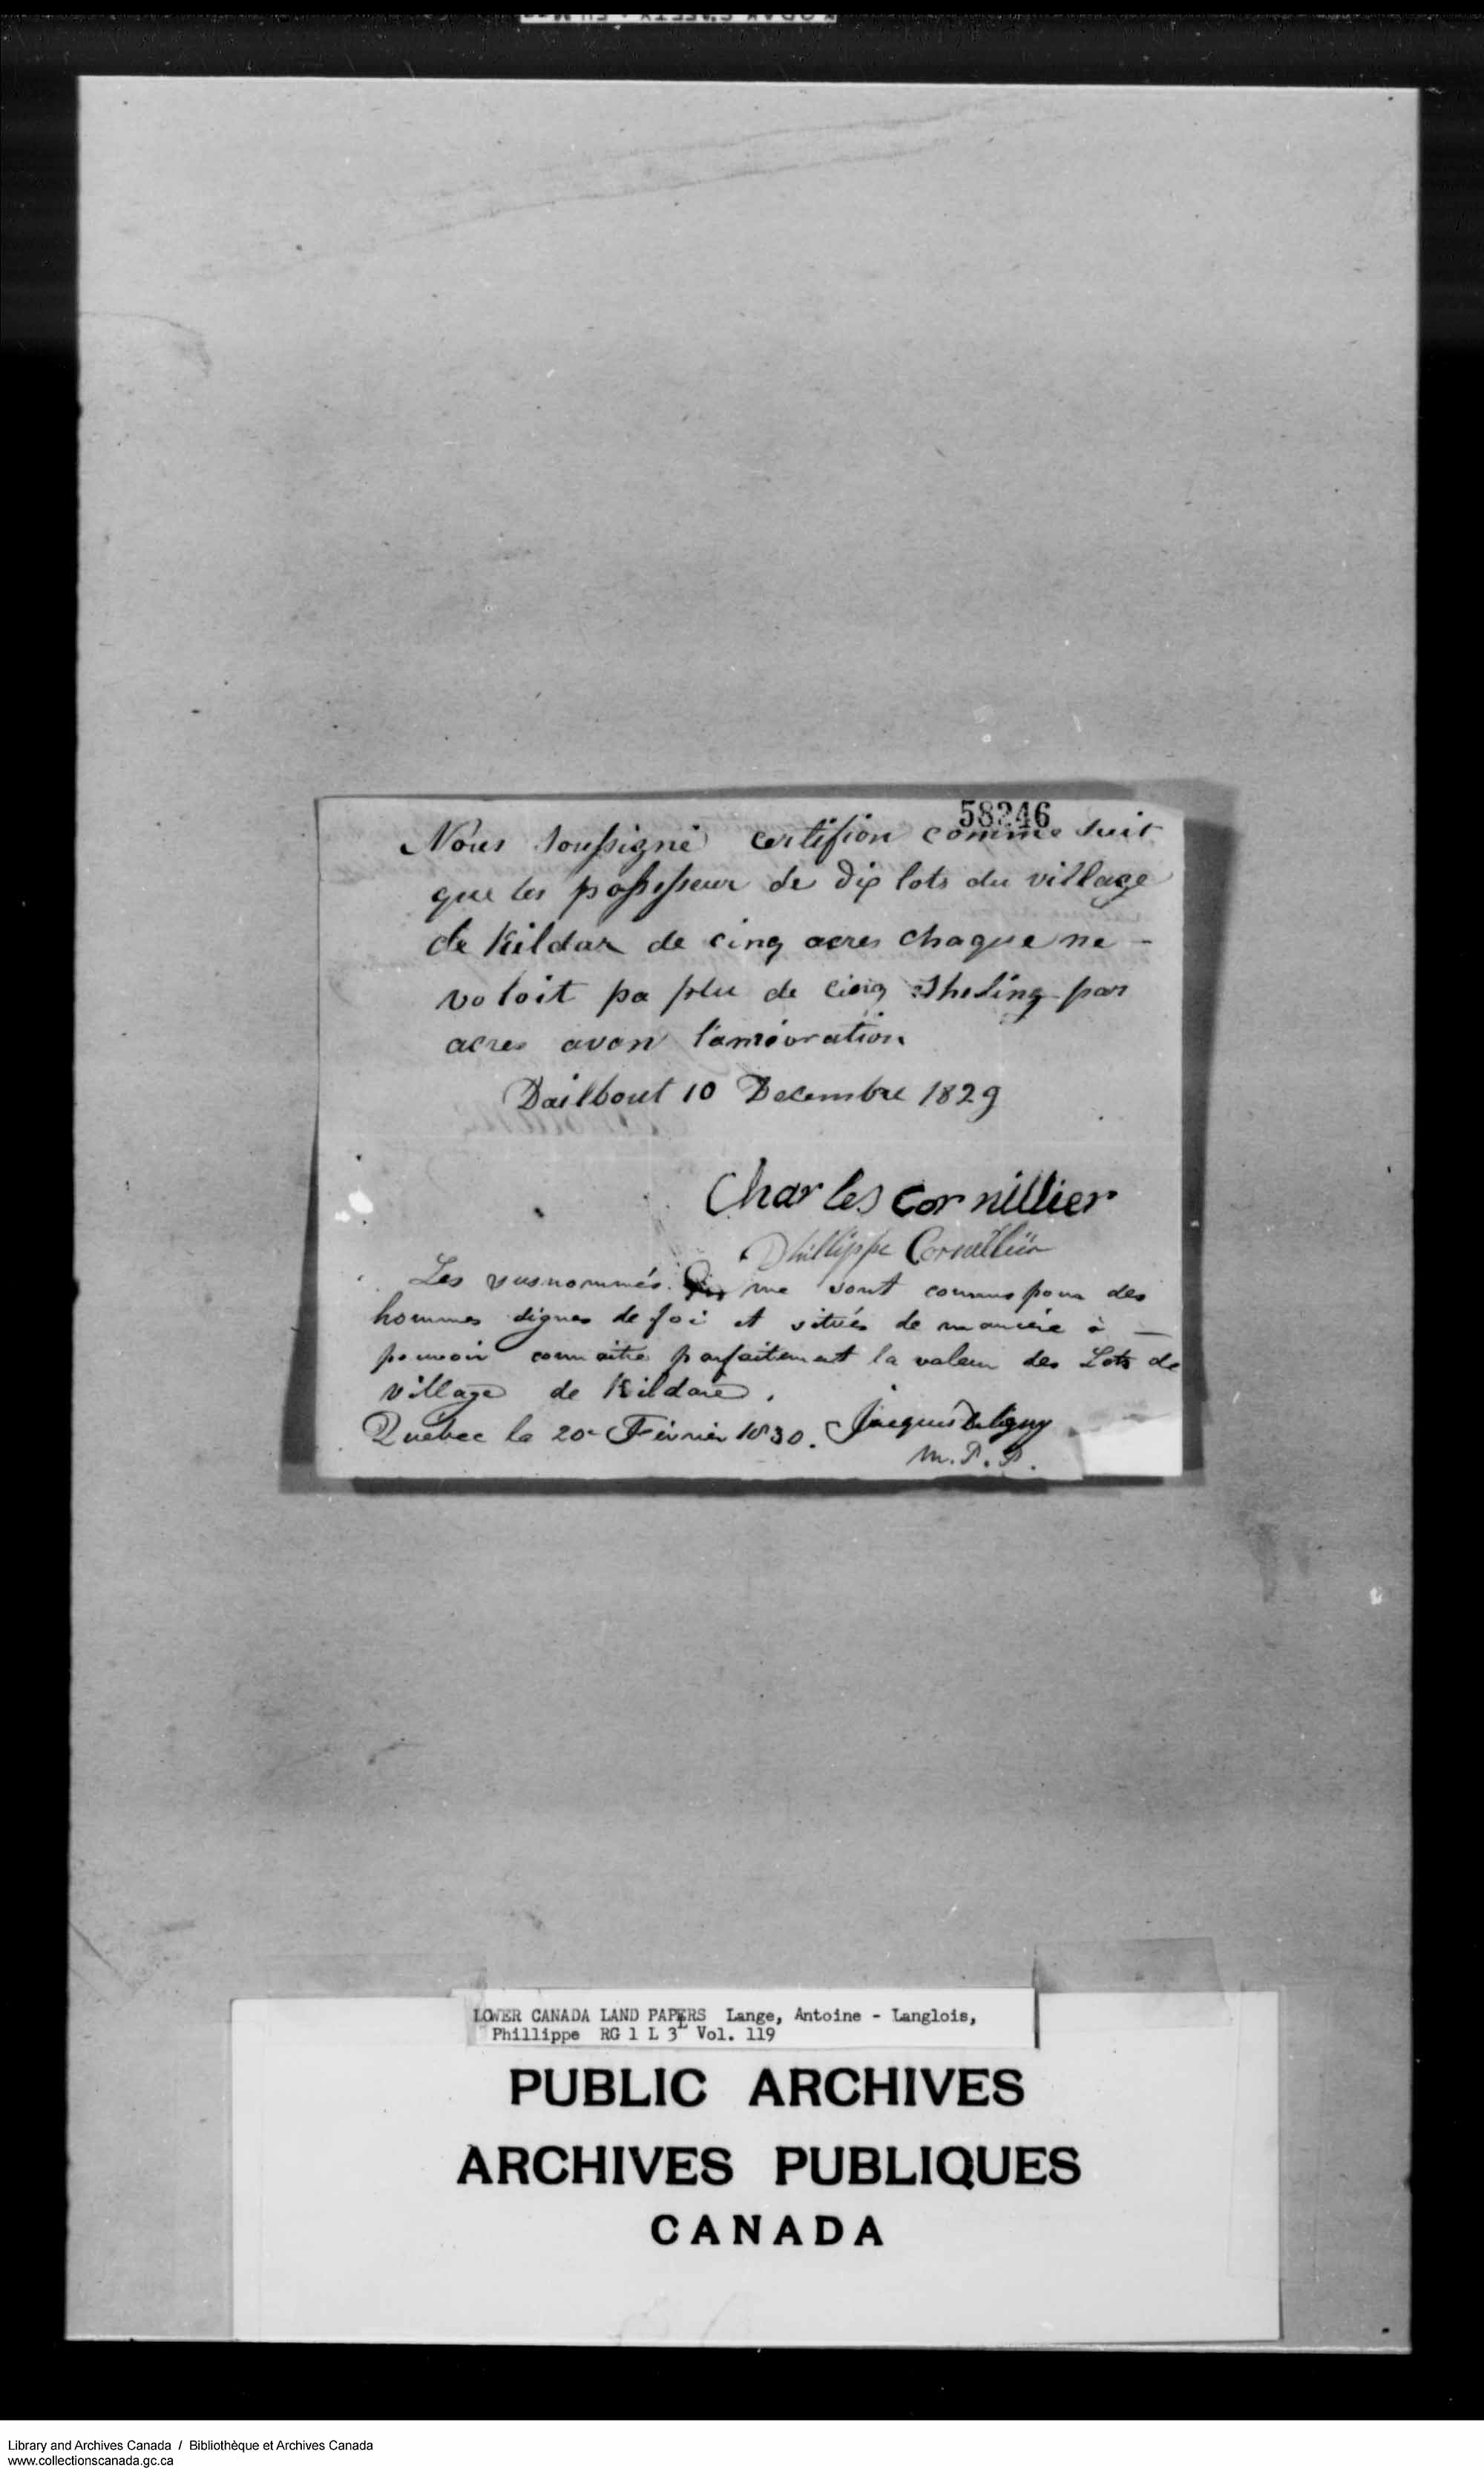 58246
Nous soussigné certifion comme suit
que les possesseur de Dix lots du village
de Kildar de cinq acres chaque ne -
valoit pa plu de cinq sheling par
acres avan l'amioration
Dailbout 10 Decembre 1829
Charles Cornillier
Phillippe Cornellier
Les susnommés me sont connus pour des
hommes dignes de foi et situés de manière à —
pouvoir connaitre parfaitement la valeur des Lots de
village de Kildare.
Québec le 20 Février 1830. Jacques Deligny
M.P.P.
LOWER CANADA LAND PAPERS Lange, Antoine - Langlois,
Phillippe RG 1 L 3L Vol. 119
PUBLIC ARCHIVES
ARCHIVES PUBLIQUES
CANADA
Library and Archives Canada / Bibliothèque et Archives Canada
www.collectionscanada.gc.ca